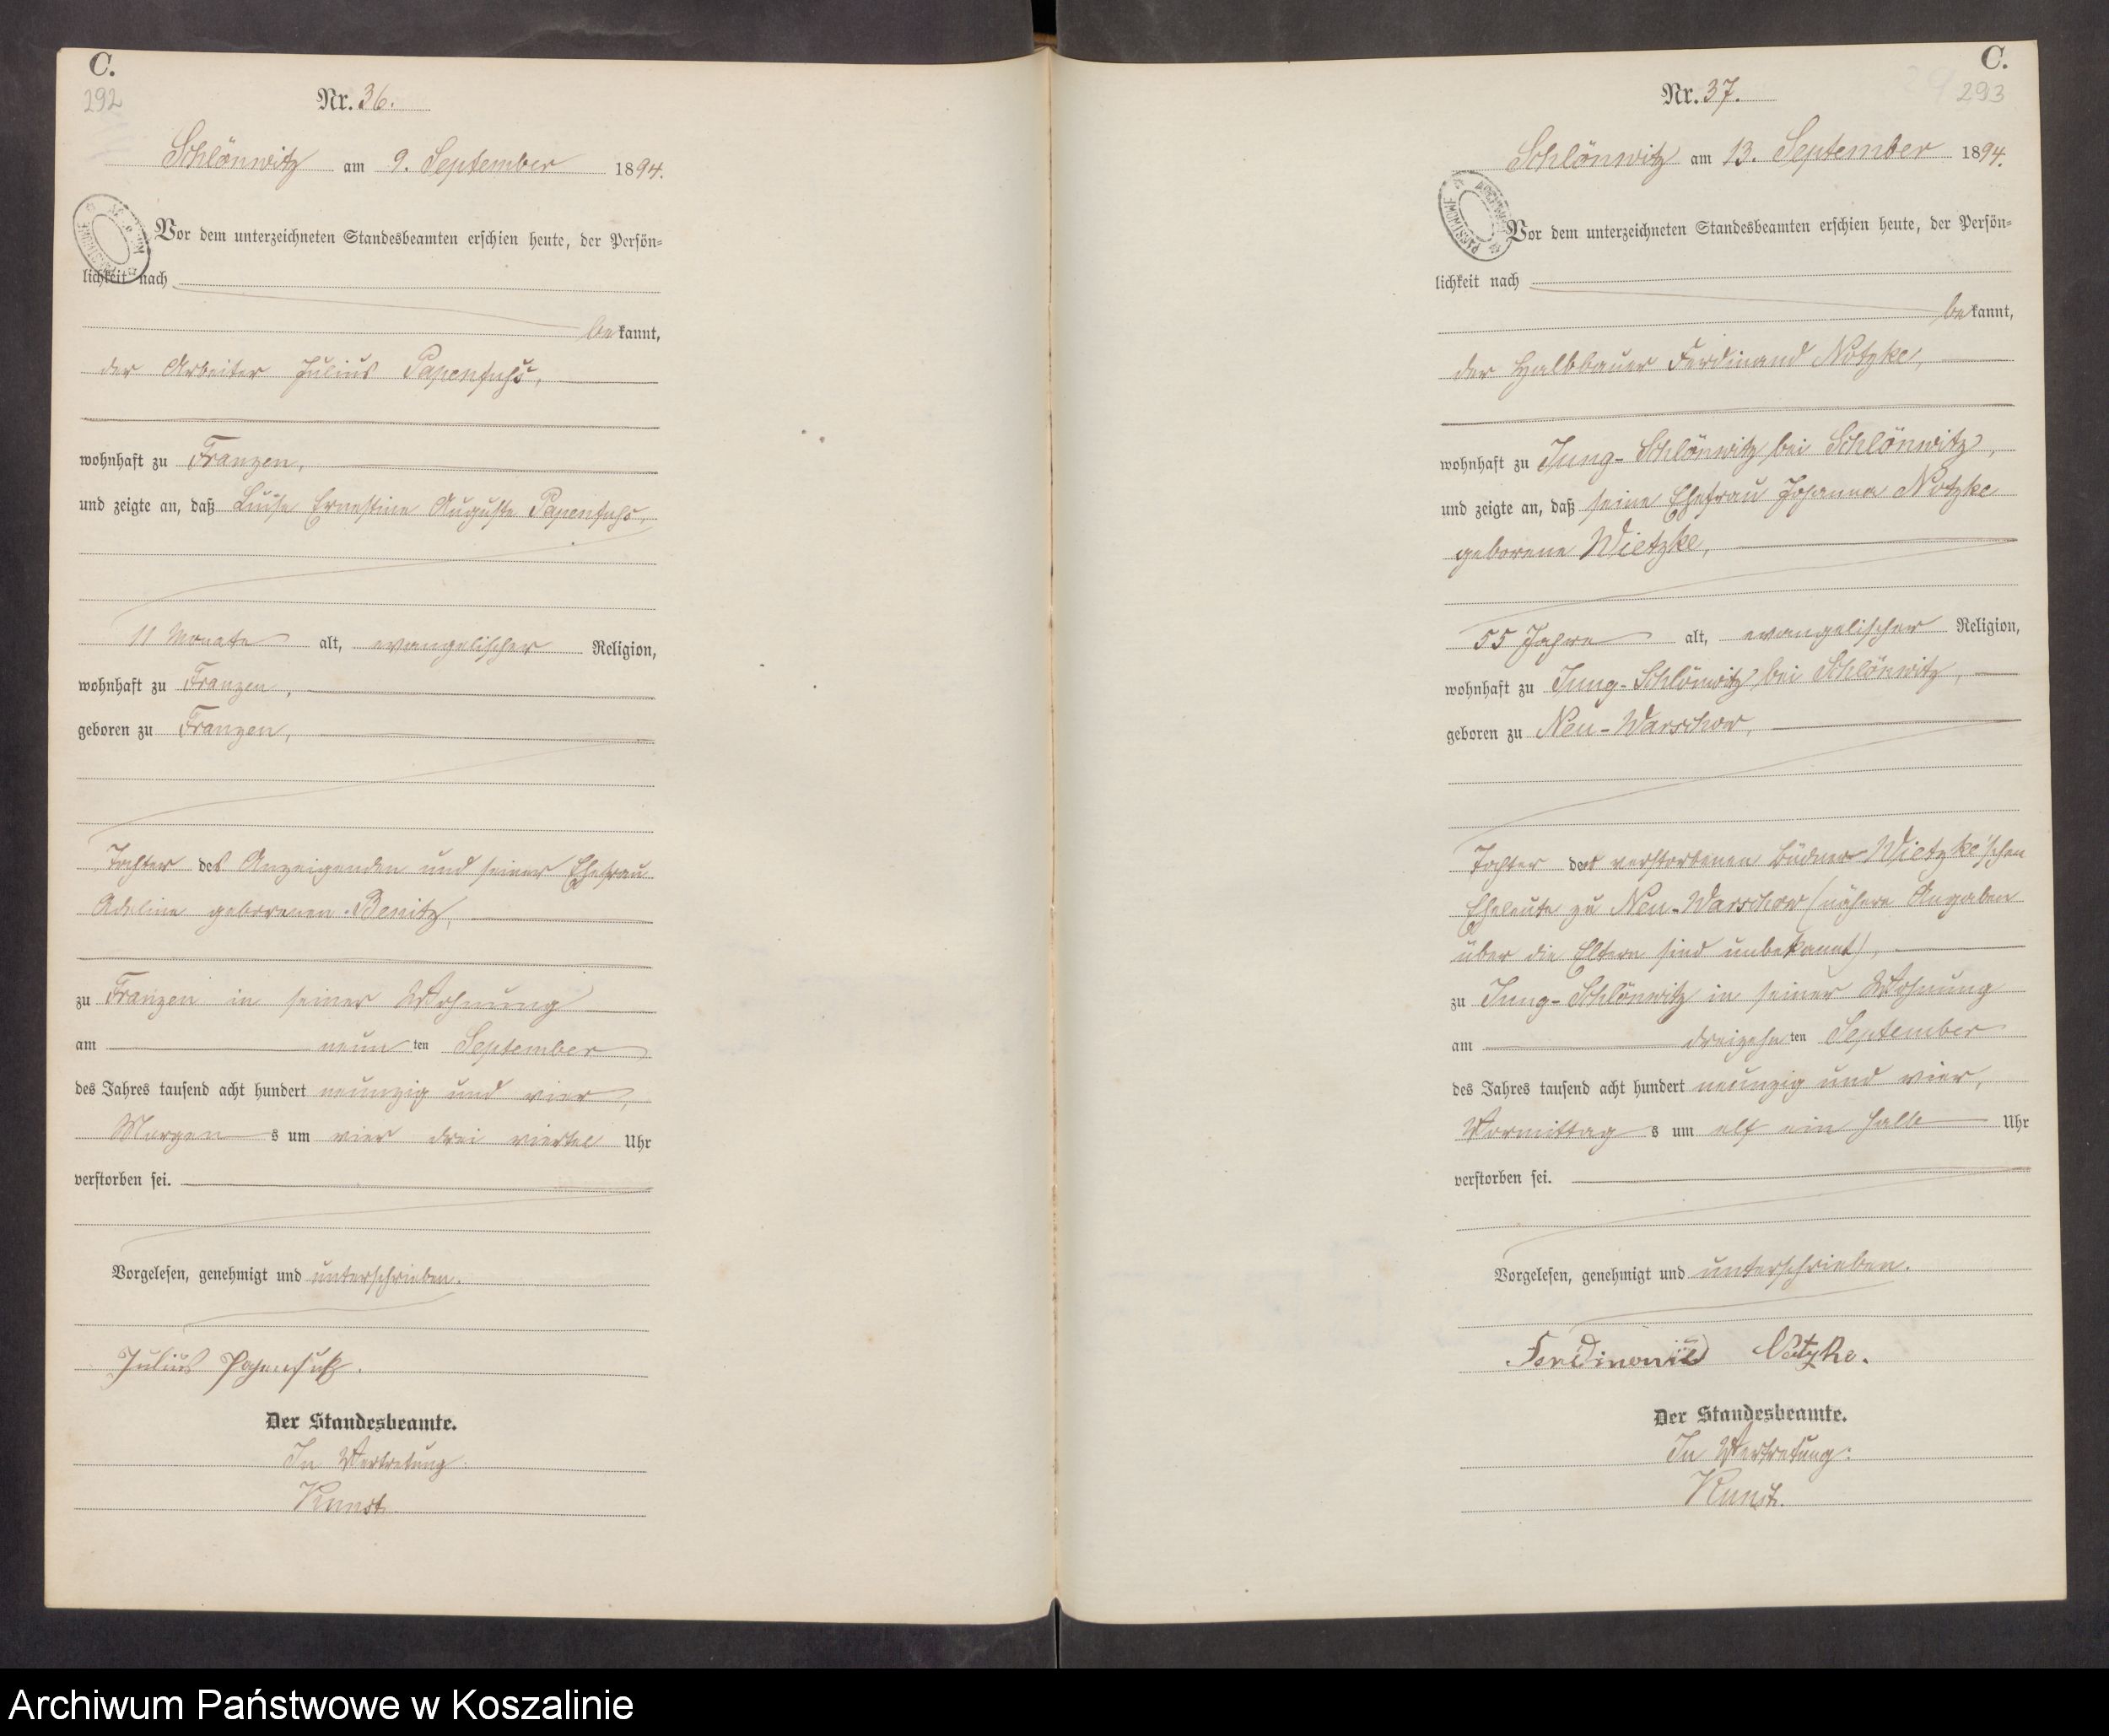 C.
292
Nr. 36.
Schlönwitz am 9. September 1894.
Vor dem unterzeichneten Standesbeamten erschien heute, der Persön-
lichkeit nach
bekannt,
der Arbeiter Julius Papenfuhs,
wohnhaft zu Franzen,
und zeigte an, daß Luise Ernestine Auguste Papenfuhs,
11 Monate alt, evangelischer Religion,
wohnhaft zu Franzen,
geboren zu Franzen,
Tochter des Anzeigenden und seiner Ehefrau
Adeline geborenen Benitz,
zu Franzen in seiner Wohnung
am neunten September
des Jahres tausend acht hundert neunzig und vier,
Morgens um vier drei viertel Uhr
verstorben sei.
Vorgelesen, genehmigt und unterschrieben.
Julius Papenfuß.
Der Standesbeamte.
In Vertretung:
Kunst.
C.
293
Nr. 37.
Schlönwitz am 13. September 1894.
Vor dem unterzeichneten Standesbeamten erschien heute, der Persön-
lichkeit nach
bekannt,
der Halbbauer Ferdinand Nötzke,
wohnhaft zu Jung-Schlönwitz bei Schlönwitz,
und zeigte an, daß seine Ehefrau Johanna Nötzke
geborene Wietzke,
55 Jahre alt, evangelischer Religion,
wohnhaft zu Jung-Schlönwitz bei Schlönwitz,
geboren zu Neu-Warschow,
Tochter der verstorbenen Büdner Wietzke'schen
Eheleute zu Neu-Warschow (nähere Angaben
über die Eltern sind unbekannt),
zu Jung-Schlönwitz in seiner Wohnung
am dreizehnten September
des Jahres tausend acht hundert neunzig und vier,
Vormittags um elf ein halb Uhr
verstorben sei.
Vorgelesen, genehmigt und unterschrieben.
Ferdinand Nötzke.
Der Standesbeamte.
In Vertretung:
Kunst.
Archiwum Państwowe w Koszalinie